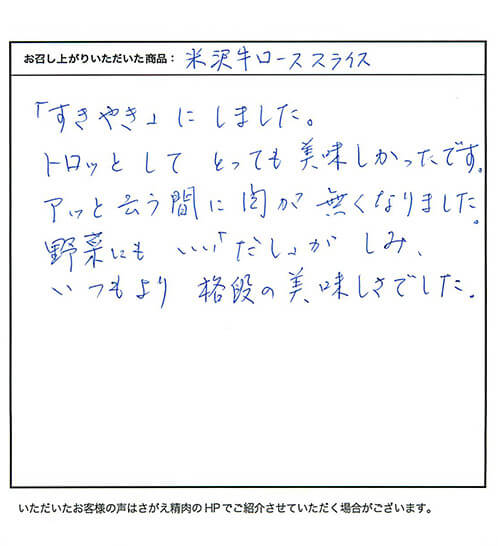 お召し上がりいただいた商品： 米沢牛ローススライス
「すきやき」にしました。
トロッとして とっても美味しかったです。
アッと云う間に肉が無くなりました。
野菜にも いい「だし」が しみ、
いつもより 格段の美味しさでした。
いただいたお客様の声はさがえ精肉のHPでご紹介させていただく場合がございます。